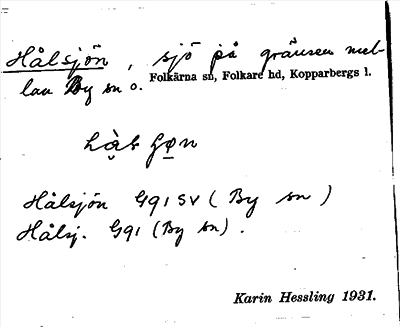 Hålsjön, sjö på gränsen mel-
lan By sn o. Folkärna sn, Folkare hd, Kopparbergs l.
Hålsjön Gg1 SV (By sn)
Hålsj. Gg1 (By sn).
Karin Hessling 1931.